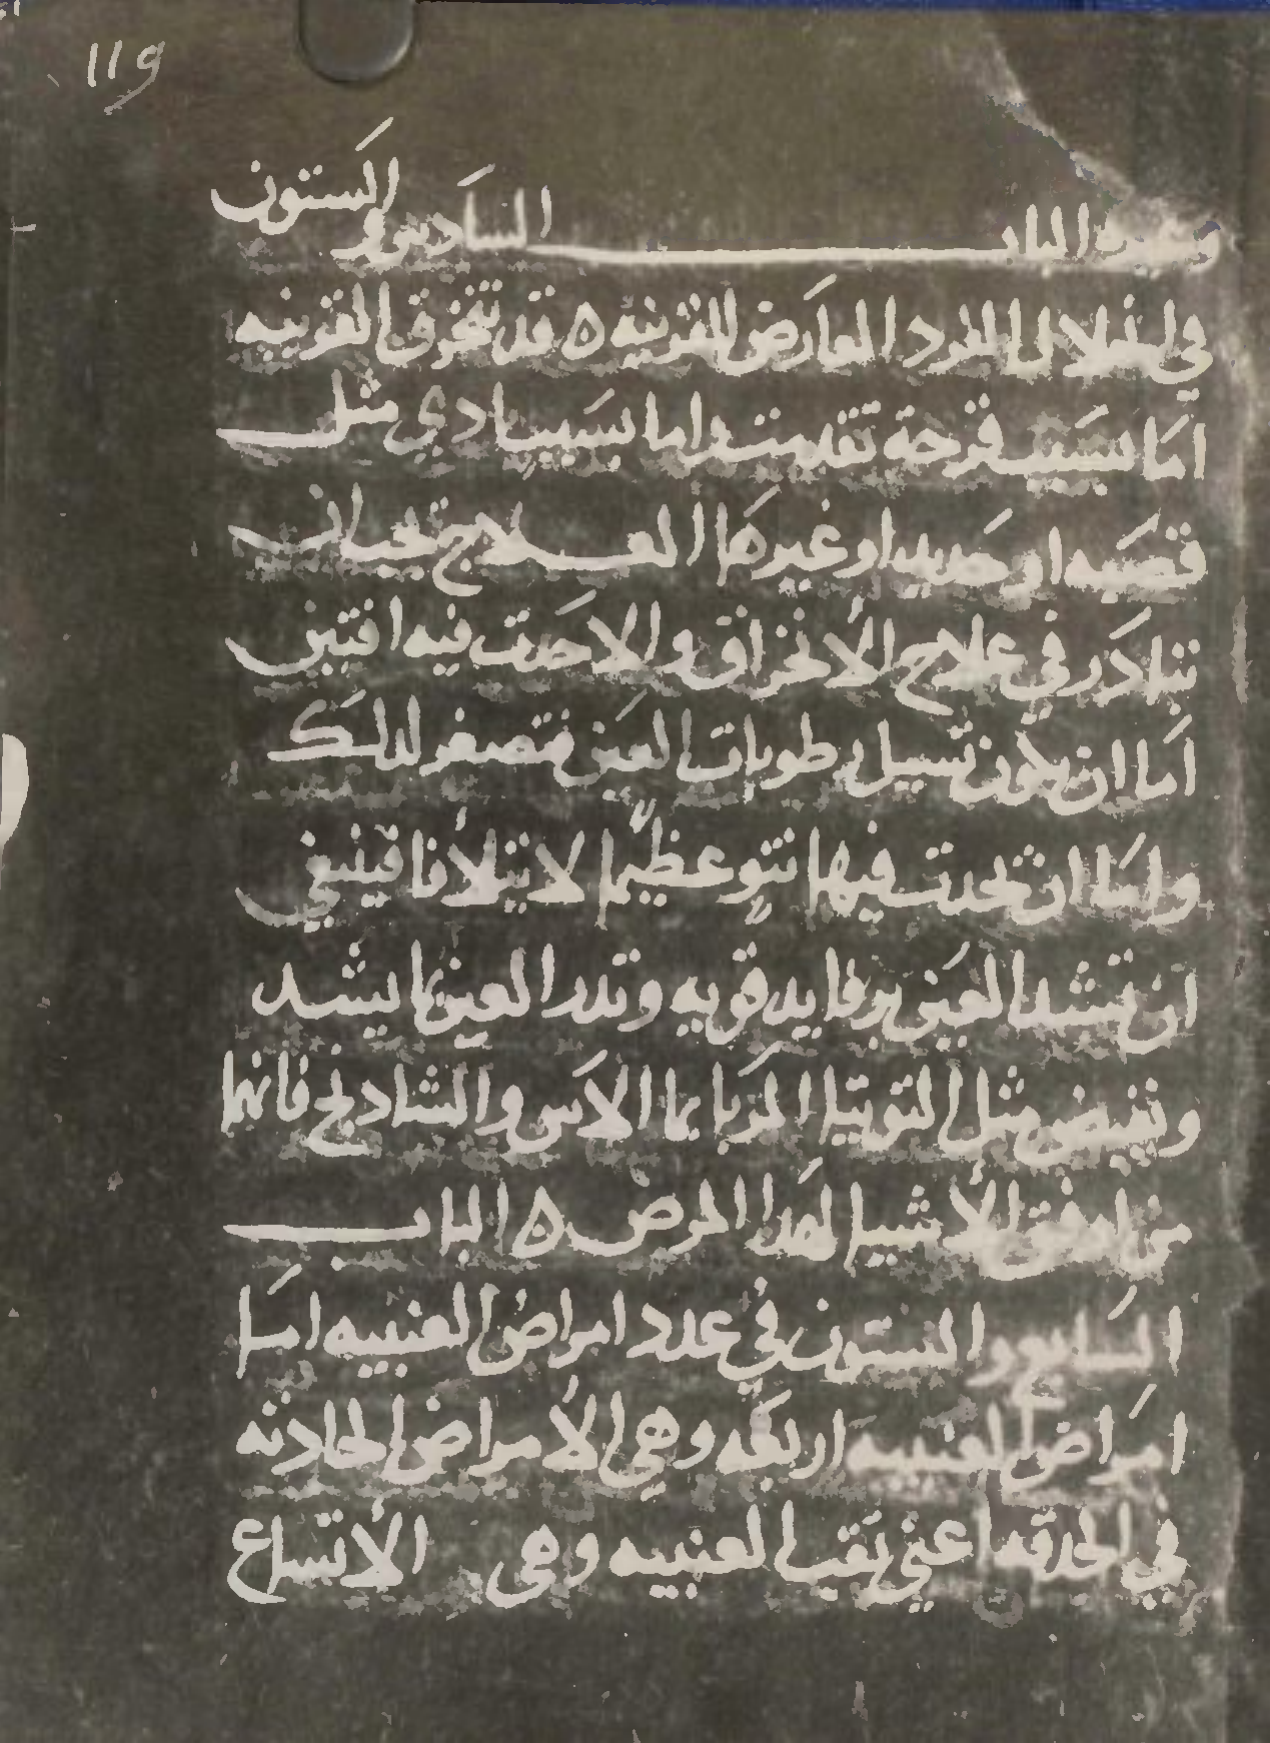 119
وغيره الباب السادس والستون
في انحلال الفرد العارض للقرنيه ٥ قد تنخرق القرنيه
اما بسبب قرحة تقدمت واما بسبب بادي مثل
قصبه او حديد او غيرها العلاج يجب ان
نبادر في علاج الانخراق والا حدث فيه افتين
اما ان يكون تسيل رطوبات العين فتصغر لذلك
واما ان تحدث فيها نتو عظيم لا فينبغي
ان تشد العين برفايد قويه وتدر العين بما يشد
ويقبض مثل التوتيا المربا بما الاس والشادنج فانهما
من اوفق الأشيا لهذا المرض ٥ الباب
السابع والستون في عدد امراض العنبيه اما
امراض العنبيه اربعه وهي الأمراض الحادثه
في الحدقه اعني ثقب العنبيه وهي الأتساع